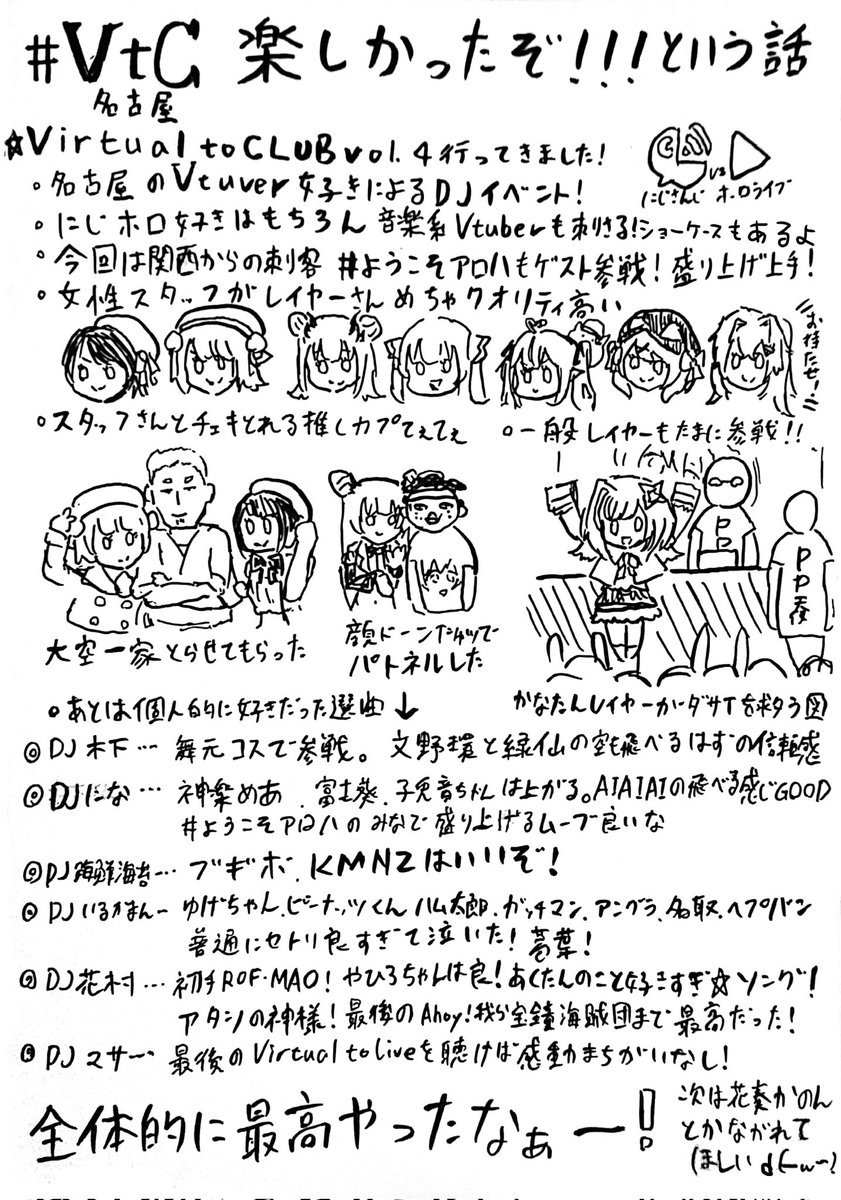 #VtC 楽しかったぞ!!!という話
名古屋
☆Virtual to CLUB vol.4行ってきました!
にじさんじ vs ホロライブ
・名古屋のVtuver好きによるDJイベント!
・にじホロ好きはもちろん 音楽系Vtuberも刺さる!ショーケースもあるよ
・今回は関西からの刺客 #ようこそアロハもゲスト参戦!盛り上げ上手!
・女性スタッフがレイヤーさんめちゃクオリティ高い
お待たせ!
・スタッフさんとチェキとれる推しカプてぇてぇ
・一般レイヤーもたまに参戦!!
PP
PP系
大空一家とらせてもらった
顔ドーンだッツで
パトネルした
かなたんレイヤーがダサTを救う図
・あとは個人的に好きだった選曲↓
◎DJ木下… 舞元コスで参戦。文野環と緑仙の空も飛べるはずの信頼感
◎DJにな… 神楽めあ、富士葵、子兎音ちゃんは上がる。AIAIAIの飛べる感じGOOD
#ようこそアロハのみなで盛り上げるムーブ良いな
◎DJ海鮮海苔… ブギボ、KMNZはいいぞ!
◎DJいるかまん― ゆげちゃん、ピーナッツくん ハム太郎、ガッチマン、アングラ、名取、ヘブバン
普通にセトリ良すぎて泣いた!葛葉!
◎DJ花村… 初手ROF-MAO! やひろちゃんは良!あくたんのこと好きすぎ☆ソング!
アタシの神様!最後のAhoy!我ら宝鐘海賊団まで最高だった!
◎DJマサ… 最後のVirtual to liveを聴けば感動まちがいなし!
全体的に最高やったなぁー!
次は花奏かのん
とかながれて
ほしい